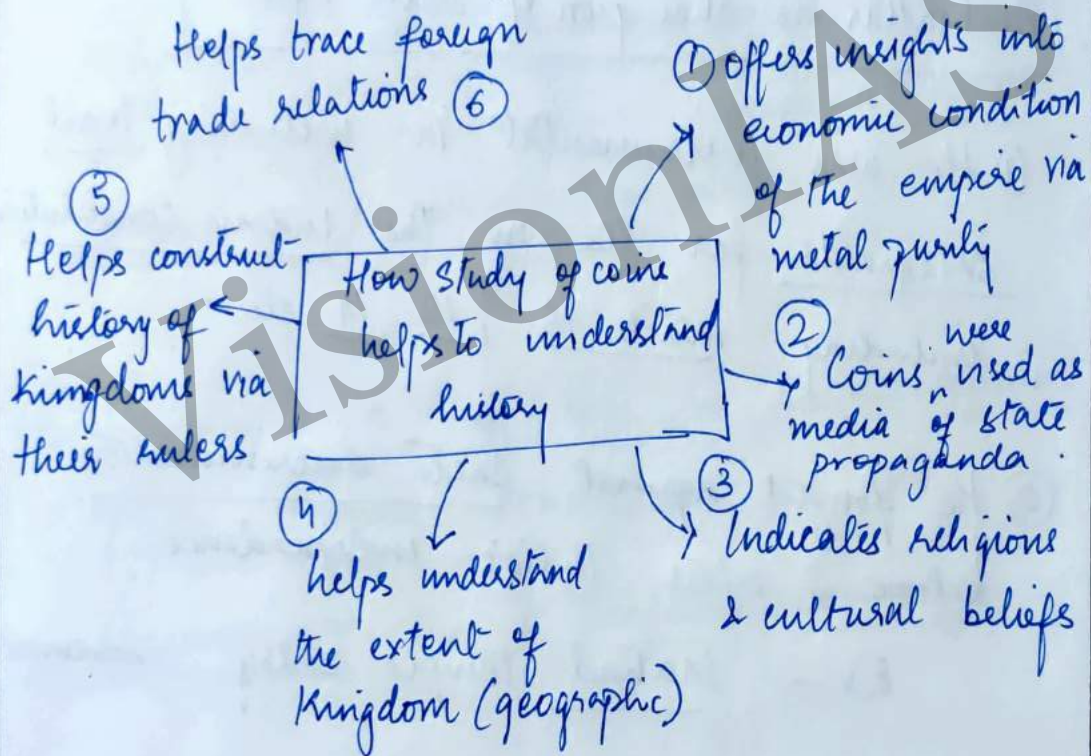 How study of coins
helps to understand
history
① offers insights into
economic condition
of the empire via
metal purity
②
were
Coins ^ used as
media of state
propaganda.
③
Indicates religions
& cultural beliefs
④
helps understand
the extent of
Kingdom (geographic)
⑤
Helps construct
history of
Kingdoms via
their rulers
Helps trace foreign
trade relations ⑥
VisionIAS